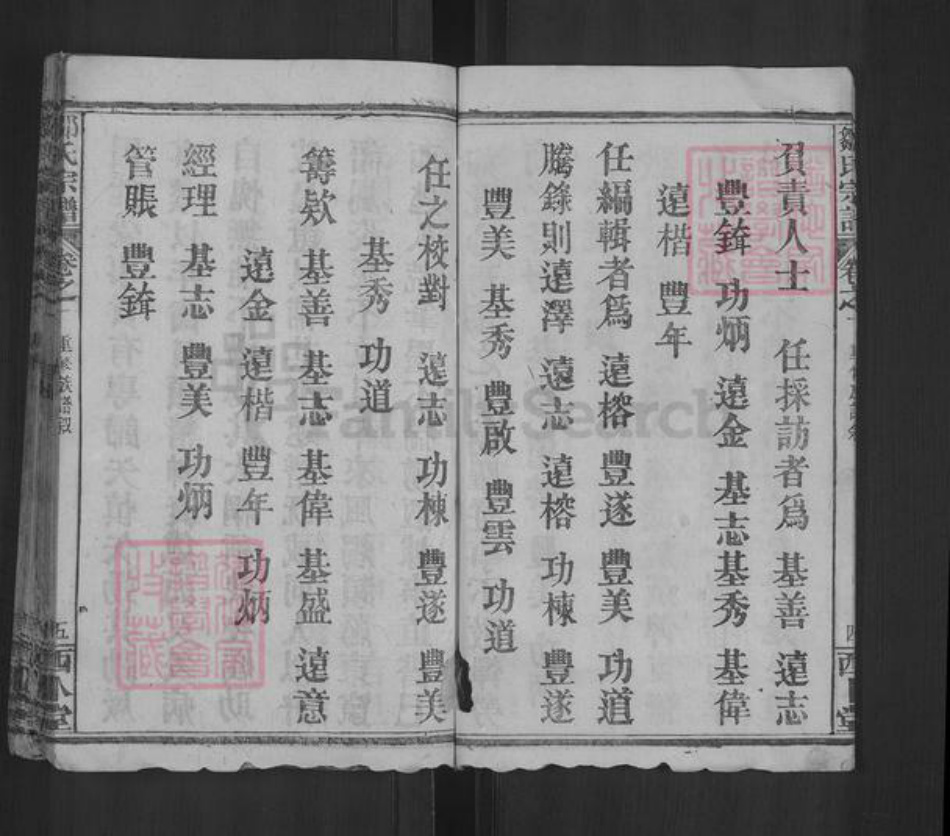 負責人士 任採訪者爲 基善 遠志
豐錥 功炳 遠金 基志 基秀 基偉
遠楷 豐年
任編輯者爲 遠榕 豐遂 豐美 功道
謄錄則遠澤 遠志 遠榕 功棟 豐遂
豐美 基秀 豐啟 豐雲 功道
任之校對 遠志 功棟 豐遂 豐美
基秀 功道
籌欵 基善 基志 基偉 基盛 遠意
遠金 遠楷 豐年 功炳
經理 基志 豐美 功炳
管賬 豐錥
氏宗譜 卷之一 重修族譜 五 西 堂
FamilySearch